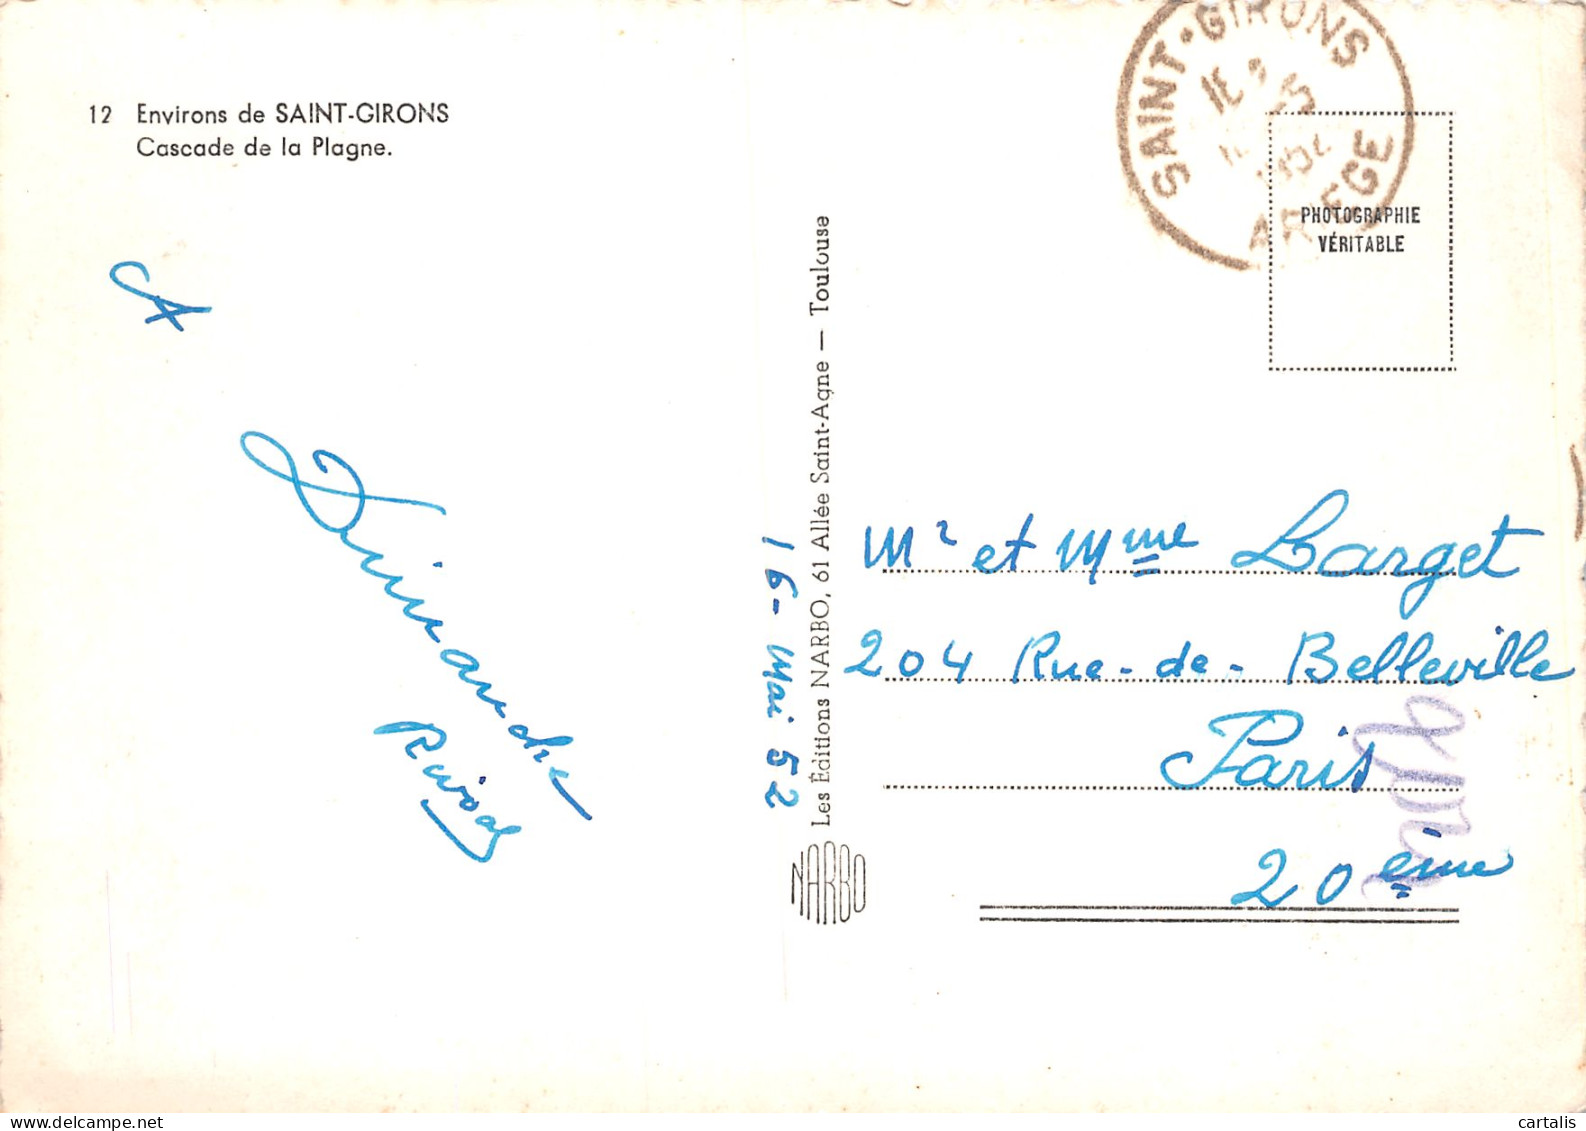 12 Environs de SAINT-GIRONS
Cascade de la Plagne.
SAINT-GIRONS
ARIEGE
PHOTOGRAPHIE
VÉRITABLE
Les Éditions NARBO, 61 Allée Saint-Agne — Toulouse
16- Mai 52
NARBO
Mr et Mme Larget
204 Rue-de-Belleville
Paris
20ème
cartalis